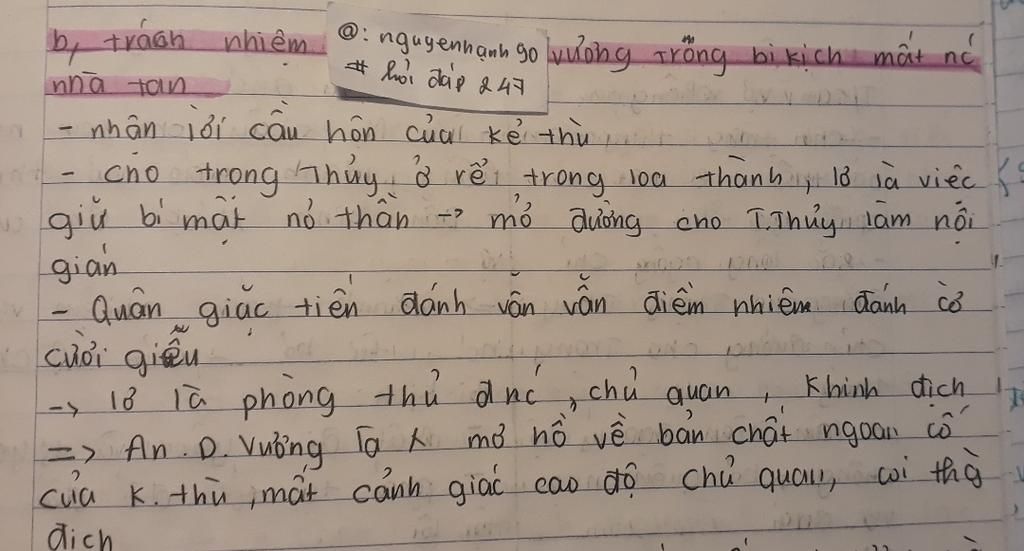 b, trách nhiệm vương trong bi kịch mất nc
@: nguyenhạnh90
# hỏi đáp 247
nhà tan
- nhận lời cầu hôn của kẻ thù
- cho trọng Thủy ở rể trong loa thành, lơ là việc
giữ bí mật nỏ thần -> mở đường cho T.Thủy làm nội
gián
- Quân giặc tiến đánh vẫn điềm nhiêm đánh cờ
cười giễu
-> lơ là phòng thủ đnc, chủ quan, khinh địch
=> An.D.Vương mơ hồ về bản chất ngoan cố
của k.thù, mất cảnh giác cao độ chủ quan, coi thg
địch